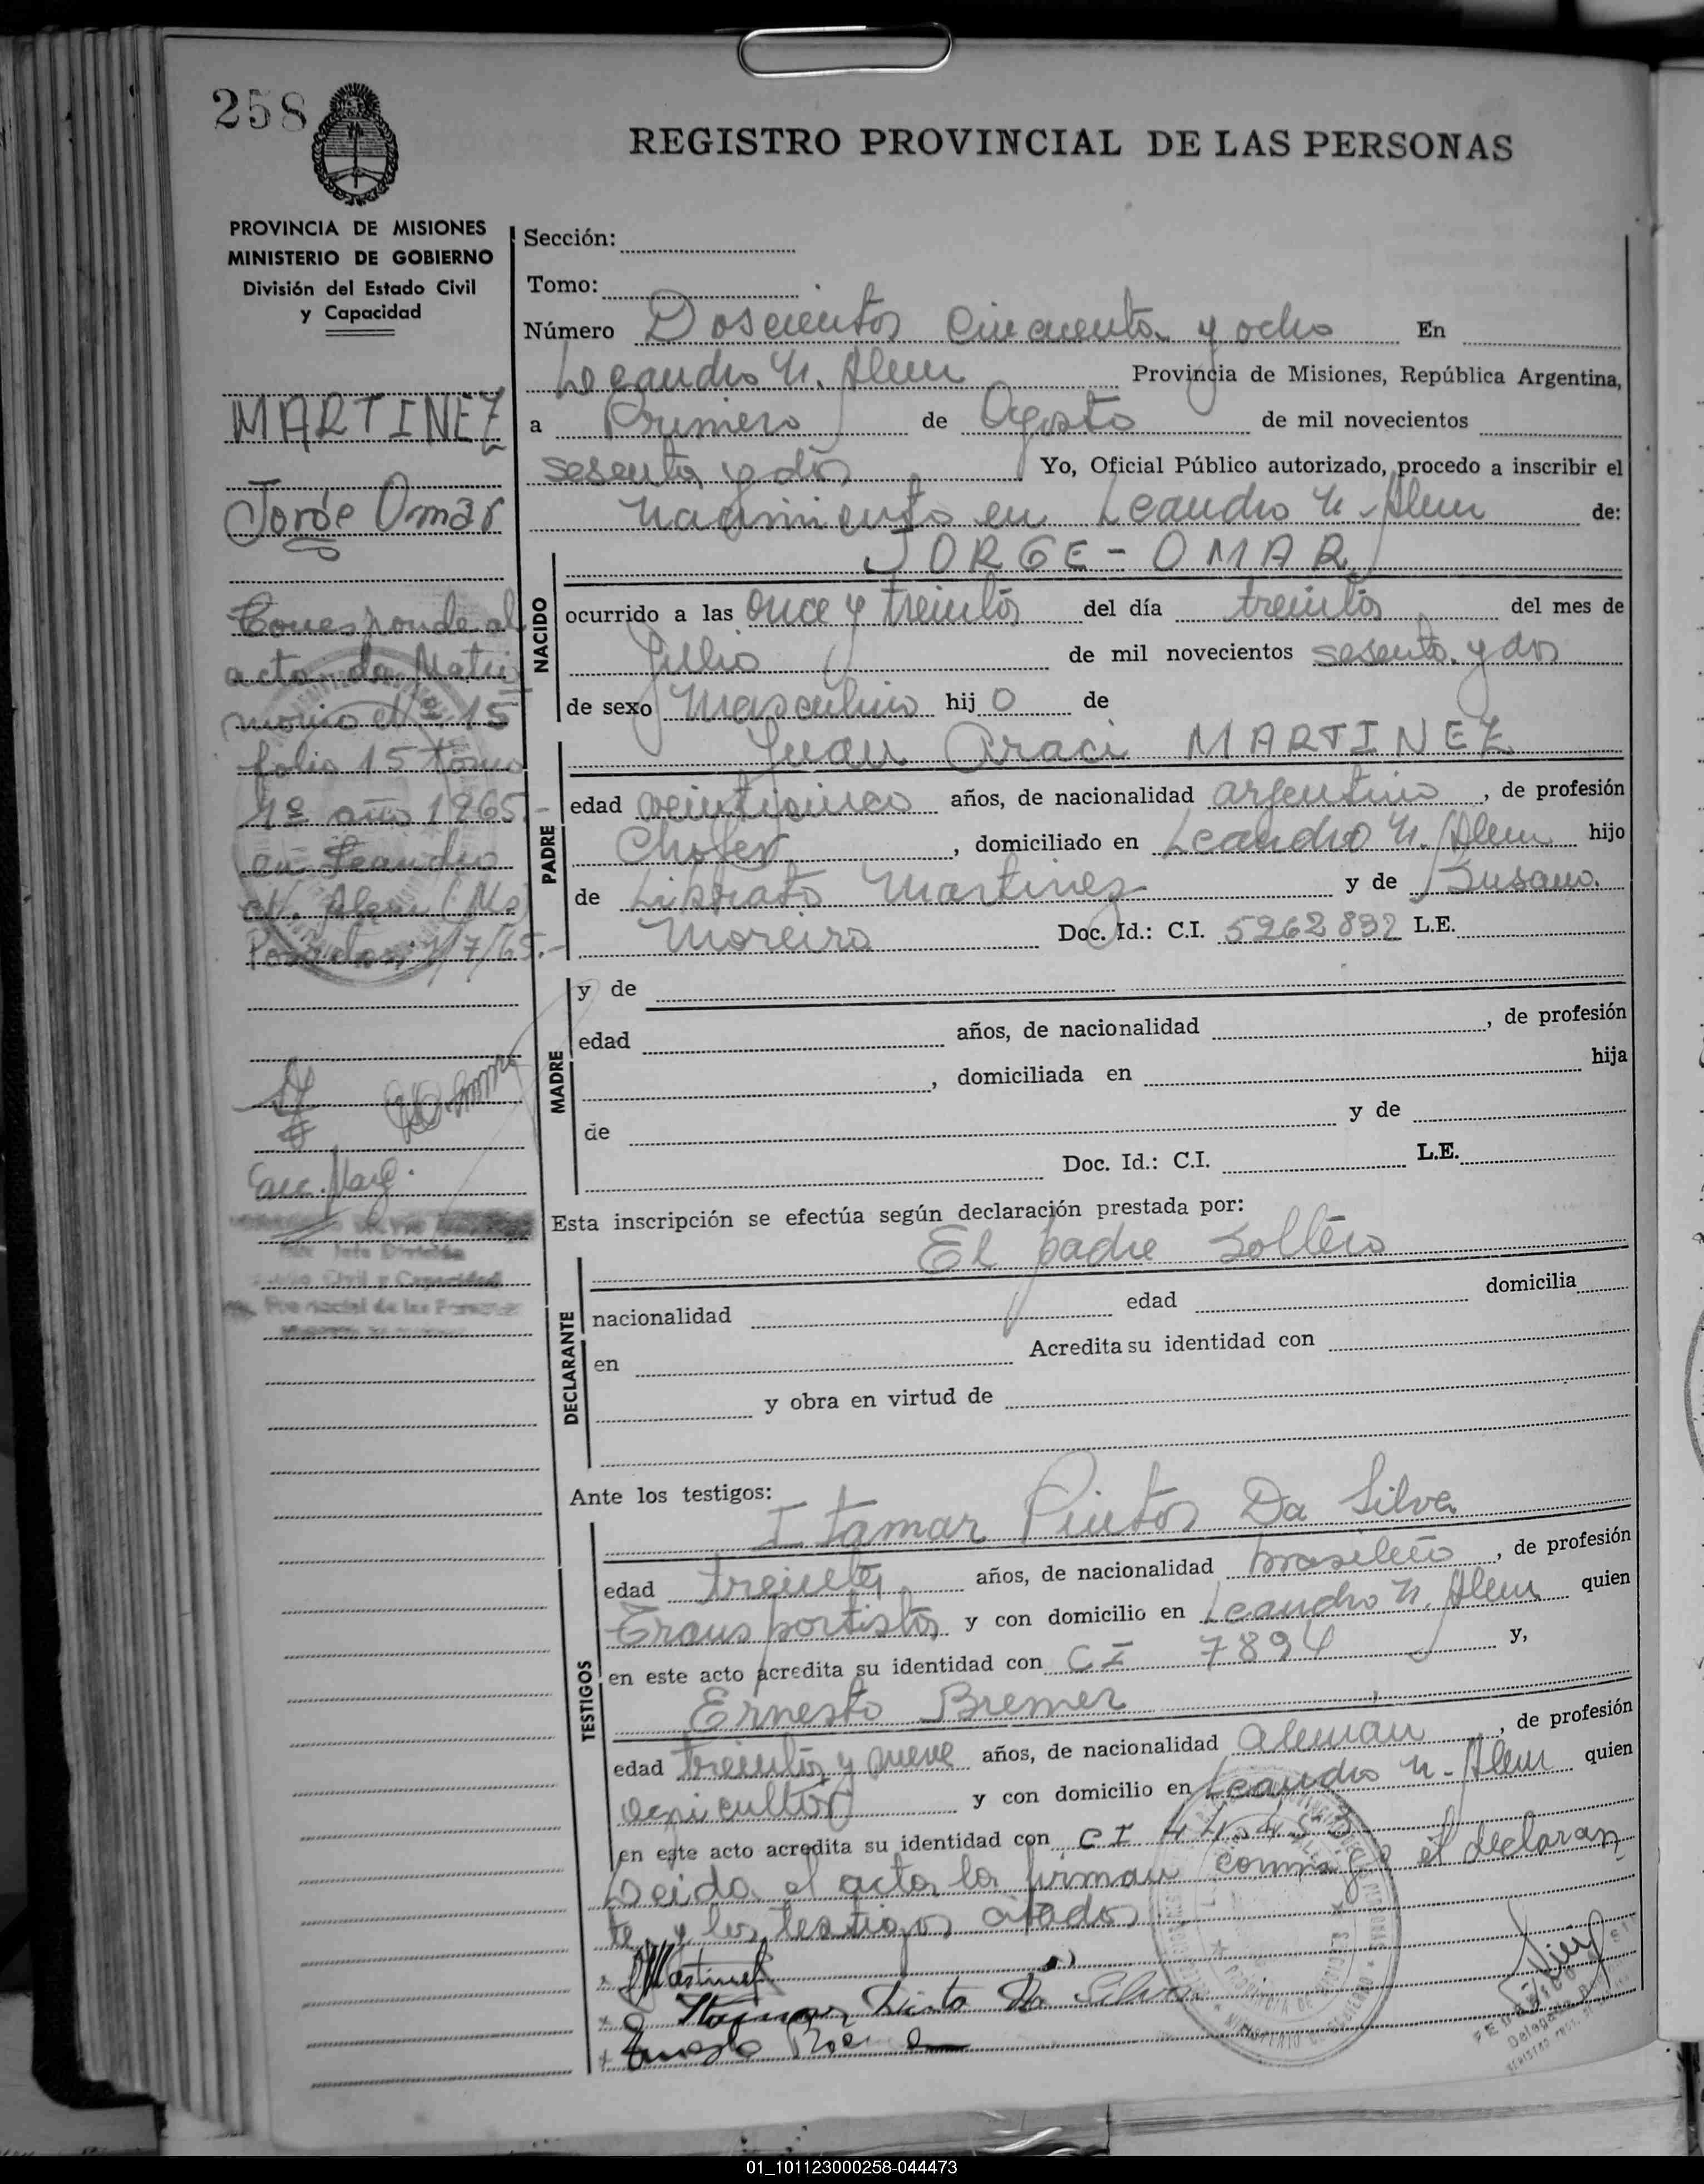 258
REGISTRO PROVINCIAL DE LAS PERSONAS
PROVINCIA DE MISIONES
MINISTERIO DE GOBIERNO
División del Estado Civil
y Capacidad
MARTINEZ
Jorge Omar
Corresponde al
acta de Matri
monio Nº 15
folio 15 tomo
1º año 1965.-
en Leandro
N. Alem (Ms)
Posadas, 7/65.-
Enc. Marg.
Jefe División
Civil y Capacidad
Provincial de las Personas
Sección:
Tomo:
Número Doscientos cincuenta y ocho En
Leandro N. Alem Provincia de Misiones, República Argentina,
a Primero de Agosto de mil novecientos
sesenta y dos Yo, Oficial Público autorizado, procedo a inscribir el
nacimiento en Leandro N. Alem de:
JORGE - OMAR
NACIDO
ocurrido a las once y treinta del día treinta del mes de
Julio de mil novecientos sesenta y dos
de sexo Masculino hijo de
Juan Araci MARTINEZ
PADRE
edad veinticinco años, de nacionalidad argentino, de profesión
Chofer, domiciliado en Leandro N. Alem hijo
de Librato Martinez y de Susana
Moreira Doc. Id.: C.I. 5262832 L.E.
MADRE
y de
edad años, de nacionalidad , de profesión
, domiciliada en hija
de y de
Doc. Id.: C.I. L.E.
Esta inscripción se efectúa según declaración prestada por:
El padre soltero
DECLARANTE
nacionalidad edad domicilia
en Acredita su identidad con
y obra en virtud de
Ante los testigos:
Itamar Pintos Da Silva
TESTIGOS
edad treinta años, de nacionalidad brasileño, de profesión
Transportista y con domicilio en Leandro N. Alem quien
en este acto acredita su identidad con CI 7894 y,
Ernesto Bremer
edad treinta y nueve años, de nacionalidad aleman, de profesión
agricultor y con domicilio en Leandro N. Alem quien
en este acto acredita su identidad con CI
Leida el acta la firman conmigo el declaran
te y los testigos citados
Martinez
Itamar Pinto Da Silva
Ernesto
01_101123000258-044473